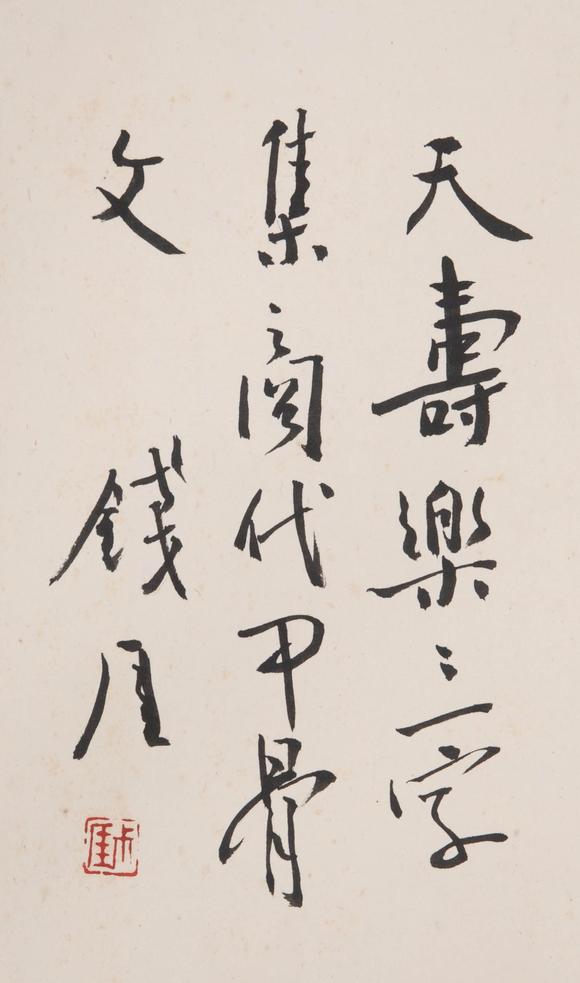 天壽樂三字
集商代甲骨
文 錢厓